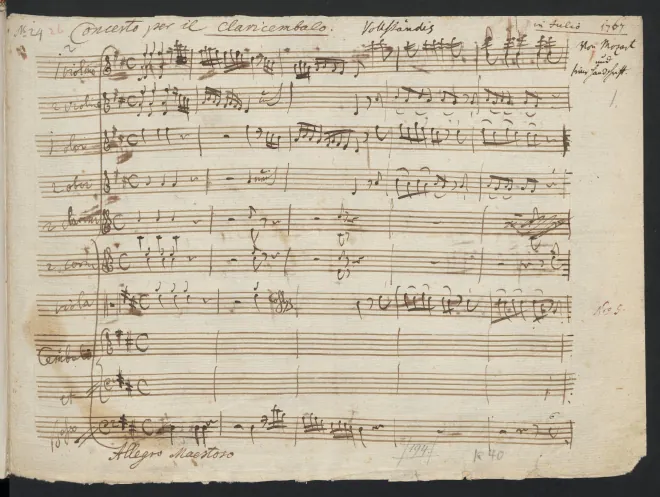 No 24 26 Concerto per il Clavicembalo. Vollständig in Julio 1767
Von Mozart
und
seine Handschrift.
1 violino
2 violino
1 oboe
2 oboe
2 clarini
2 corni
viola
Cembalo
et
Basso
Allegro Maestoso
No 5.
[194]
K 40